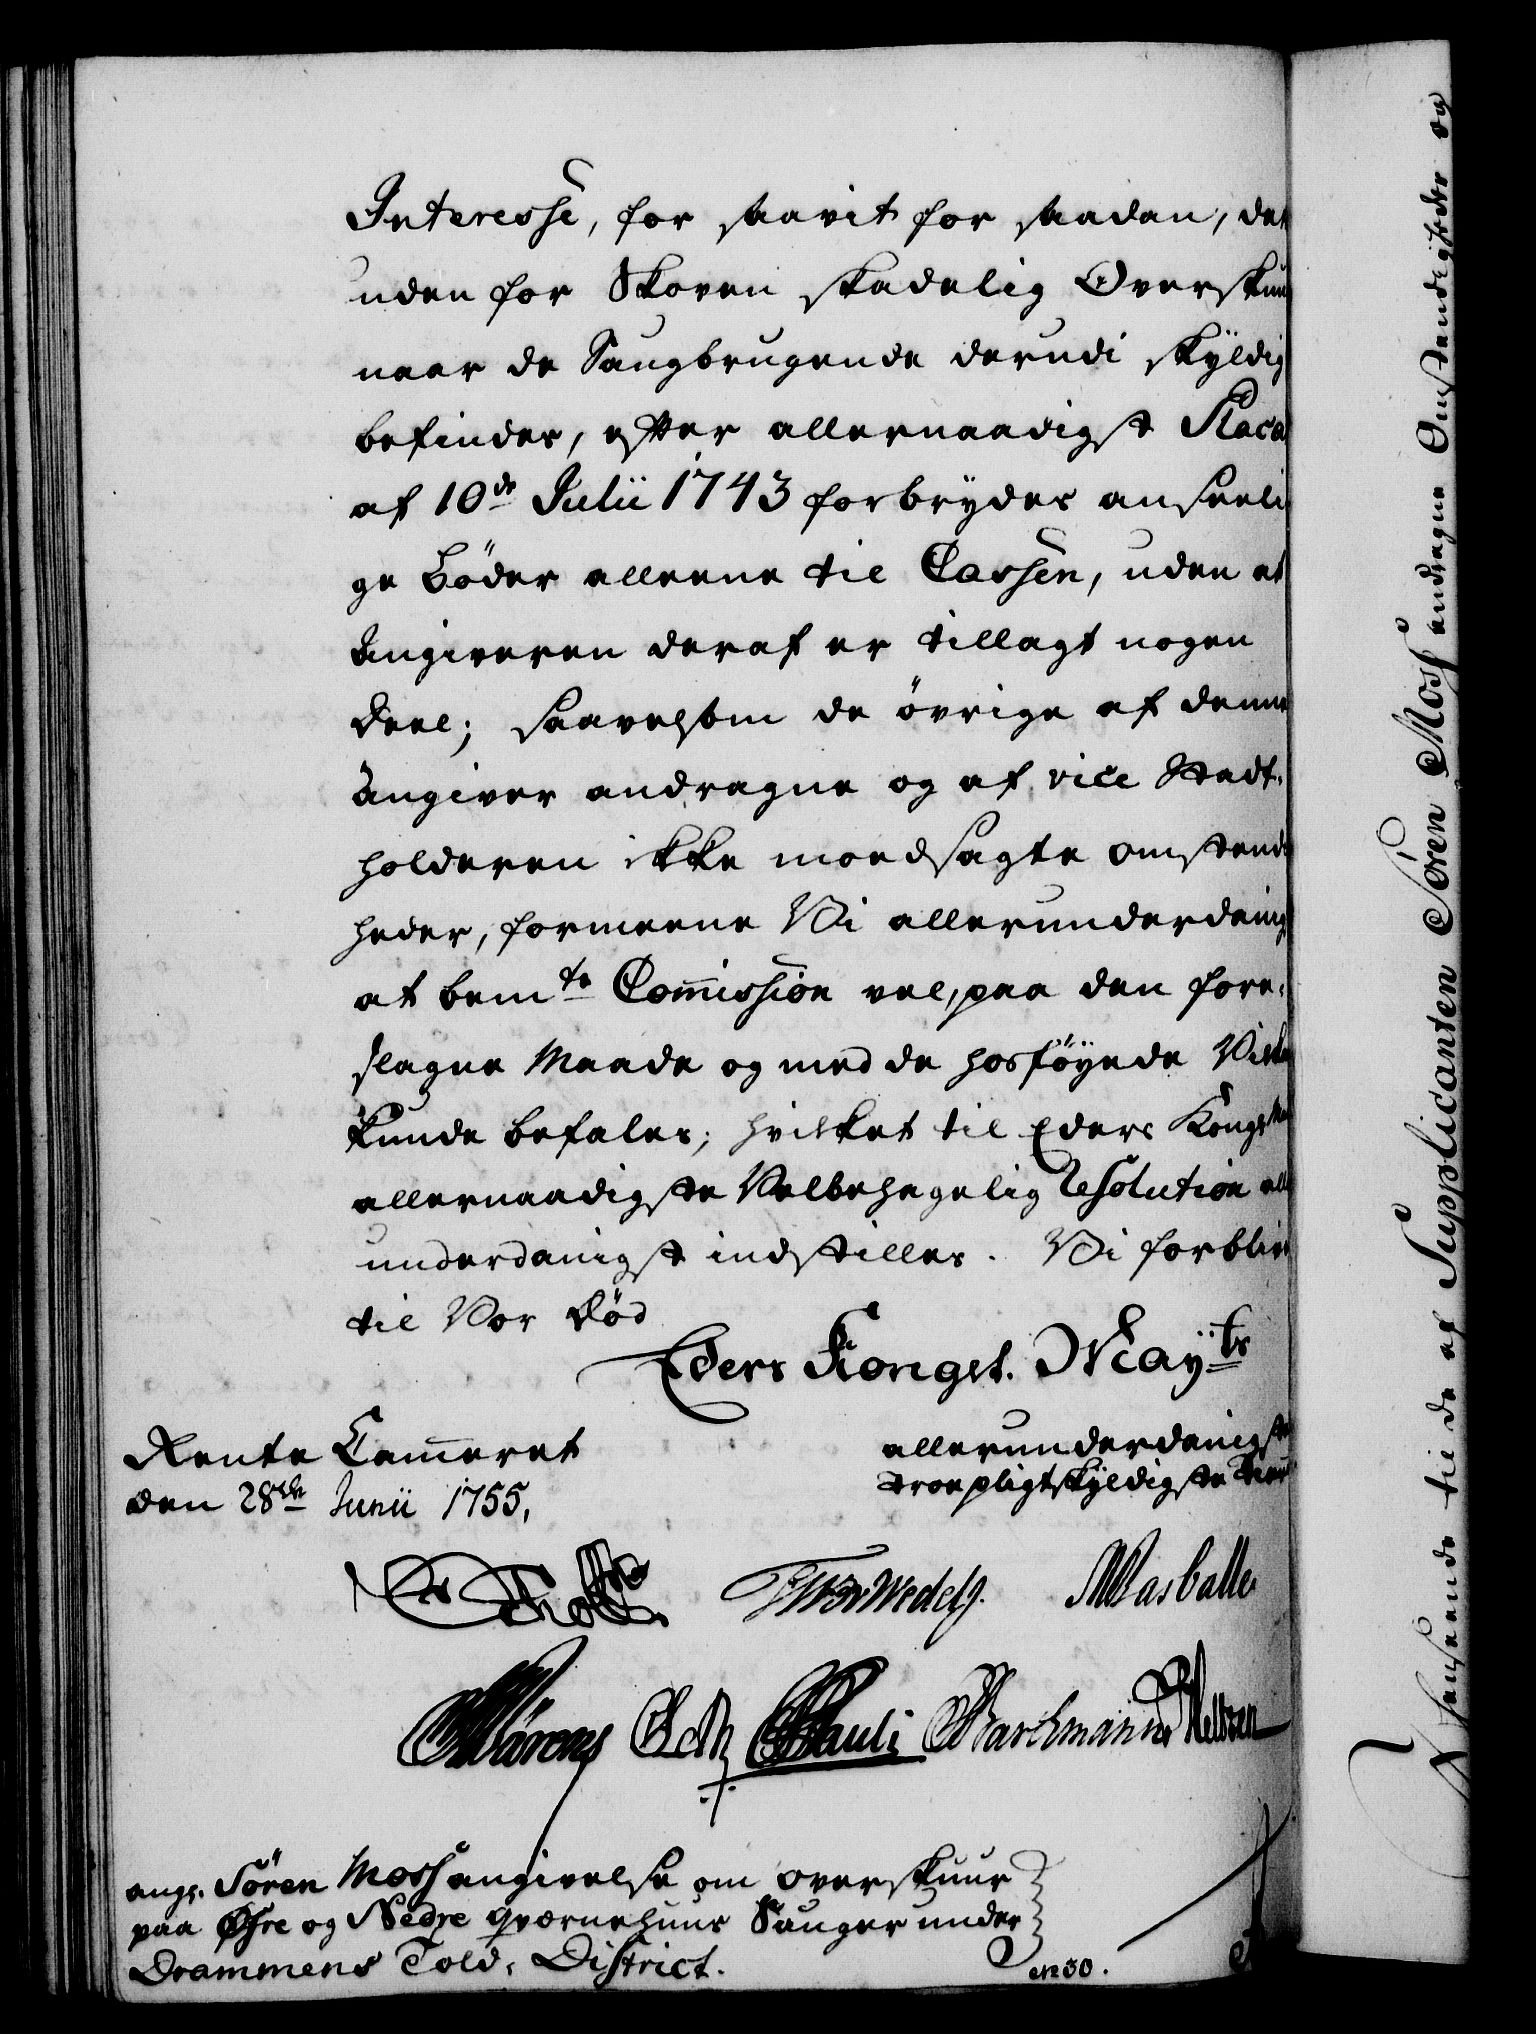 Interesse, for saavit for saadan, det
uden for Skoven skadelig Overskuur
naar de Saugbrugende derudi skyldig
befindes, efter allernaadigst Placa
af 10de Julii 1743 forbrydes anseeli
ge Böder alleene til Cassen, uden at
Angiveren deraf er tillagt nogen
Deel; saavelsom de övrige af denne
Angiver andragne og af vice Stadt-
holderen ikke moedsagte omstændig
heder, formeene Vi allerunderdanigst
at bemte Commission vel, paa den fore-
slagne Maade og med de hosföyede Vilkaar
kunde befales; hvilket til Eders Kongl. May
allernaadigste Velbehagelig Resolution aller
underdanigst indstilles. Vi forblive
til Vor Död
Eders Kongel. Mayts
Rente Cammeret
den 28de Junii 1755.
allerunderdanigste
troepligtskyldigste Tien
Wedel
Masballe
Pauli Barchmann
ang. Sören Moss angivelse om overskuur
paa Øfre og Nedre Qværnehuus Sauger under
Drammens Told-District.
No 50.
I Henseende til de af Supplicanten Sören Moss andragne Omstændigheder og